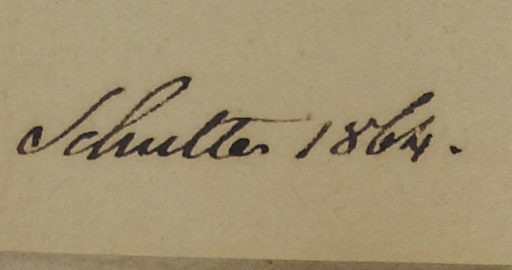 Schulter 1864.